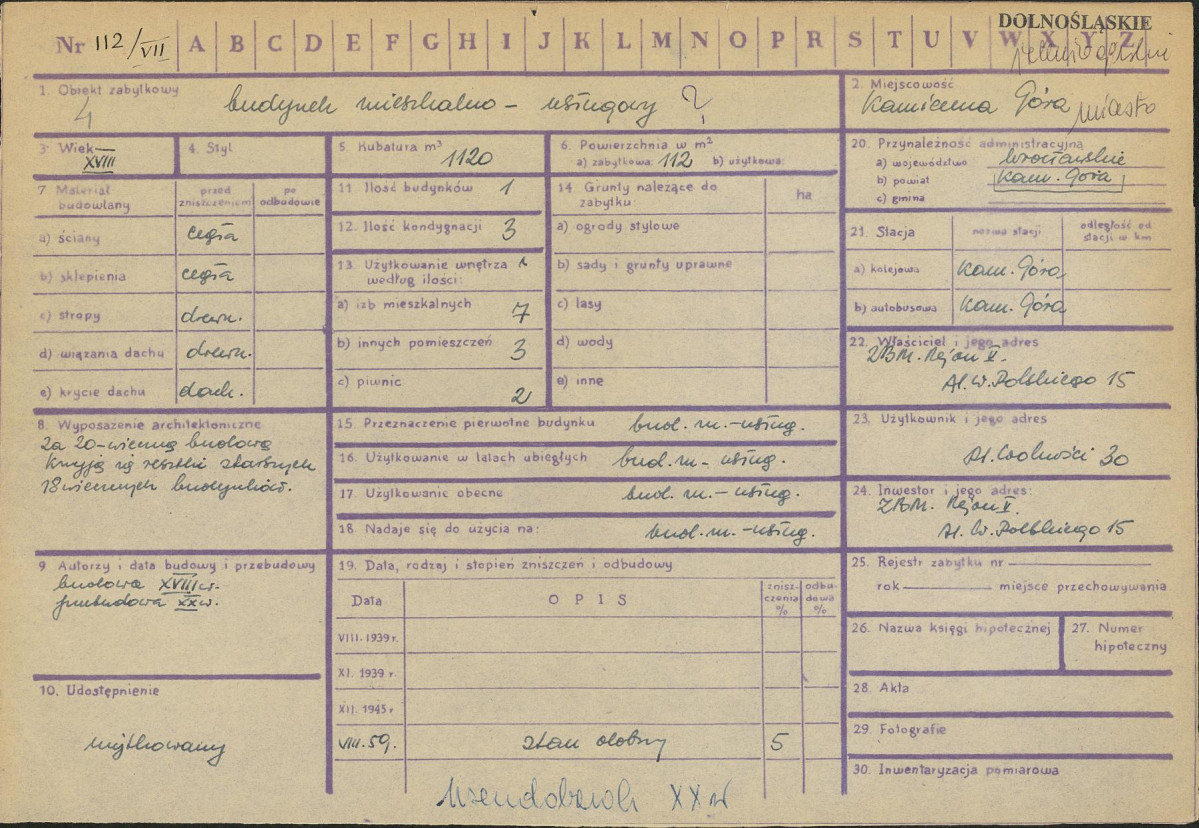 DOLNOŚLĄSKIE
Nr 112/VII A B C D E F G H I J K L M N O P R S T U V W X Y Z
1. Obiekt zabytkowy
4
budynek mieszkalno - usługowy ?
2. Miejscowość
Kamienna Góra miasto
3. Wiek
XVIII
4. Styl
5. Kubatura m³
1120
6. Powierzchnia w m²
a) zabytkowa: 112 b) użytkowa:
20. Przynależność administracyjna
a) województwo wrocławskie
b) powiat Kam. Góra
c) gmina
7 Materiał budowlany
przed zniszczeniem
po odbudowie
a) ściany cegła
b) sklepienia cegła
c) stropy drewn.
d) wiązania dachu drewn.
e) krycie dachu dach.
11 Ilość budynków 1
12. Ilość kondygnacji 3
13. Użytkowanie wnętrza
według ilości:
a) izb mieszkalnych 7
b) innych pomieszczeń 3
c) piwnic 2
14. Grunty należące do
zabytku:
ha
a) ogrody stylowe
b) sady i grunty uprawne
c) lasy
d) wody
e) inne
21. Stacja
nazwa stacji
odległość od
stacji w km
a) kolejowa Kam. Góra
b) autobusowa Kam. Góra
22. Właściciel i jego adres
ZBM. Rejon V.
Al. W. Polskiego 15
8. Wyposażenie architektoniczne
Za 20-wieczną budową
kryją się resztki starszych
18 wiecznych budynków.
15. Przeznaczenie pierwotne budynku bud. m.-usług.
16. Użytkowanie w latach ubiegłych bud. m - usług.
17. Użytkowanie obecne bud. m. - usług.
18. Nadaje się do użycia na: bud. m. - usług.
23. Użytkownik i jego adres
Pl. Wolności 30
24. Inwestor i jego adres:
ZBM. Rejon V.
Al. W. Polskiego 15
9 Autorzy i data budowy i przebudowy
budowa XVIII w.
przebudowa XX w.
19. Data, rodzaj i stopień zniszczeń i odbudowy
Data
OPIS
znisz-
czenia
%
odbu-
dowa
%
VIII. 1939 r.
XI. 1939 r.
XII. 1945 r
VIII. 59. stan dobry 5
25. Rejestr zabytku nr
rok miejsce przechowywania
26. Nazwa księgi hipotecznej
27. Numer
hipoteczny
10. Udostępnienie
użytkowany
28. Akta
29. Fotografie
30. Inwentaryzacja pomiarowa
XX w